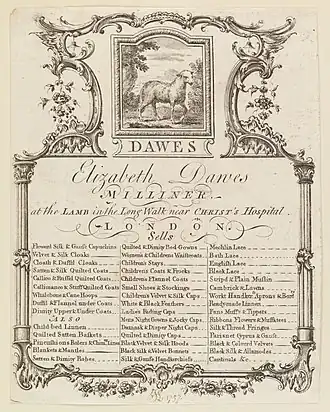 DAWES
Elizabeth Dawes
MILLINER
at the LAMB in the Long Walk near CHRIST's Hospital
LONDON
Sells
Flower'd Silk & Gauze Capuchins
Velvet & Silk Cloaks
Cloath & Duffil Cloaks
Satten & Silk Quilted Coats
Callico & Ruffil Quilted Coats
Callimanco & Stuff Quilted Coats
Whalebone & Cane Hoops
Duffil & Flannel under Coats
Dimity Upper & Under Coats
ALSO
Child-bed Linnen
Quilted Satten Baskets
Pincushions
Blankets & Mantles
Satten & Dimity Robes
Quilted & Dimity Bed-Gowns
Women's & Childrens Waistcoats
Childrens Stays
Childrens Coats & Frocks
Childrens Flannel Coats
Small Shoes & Stockings
Childrens Velvet & Silk Caps
White & Black Feathers
Ladies Riding Caps
Mens Night Gowns & Jocky Caps
Damask & Diaper Night Caps
Quilted & Dimity Caps
Black Velvet & Silk Hoods
Black Silk & Velvet Bonnets
Silk & Gauze Handkerchiefs
Mechlin Lace
Bath Lace
English Lace
Black Lace
Strip'd & Plain Muslin
Cambrick & Lawns
Work'd Handkerchiefs Aprons &
Needlework Linnens
Fans Muffs & Tippets
Ribbons Flowers & Muffatees
Silk & Thread Fringes
Paris net Cyprus & Gauze
Black & Colour'd Velvets
Black Silk & Allamodes
Cardinals &c.